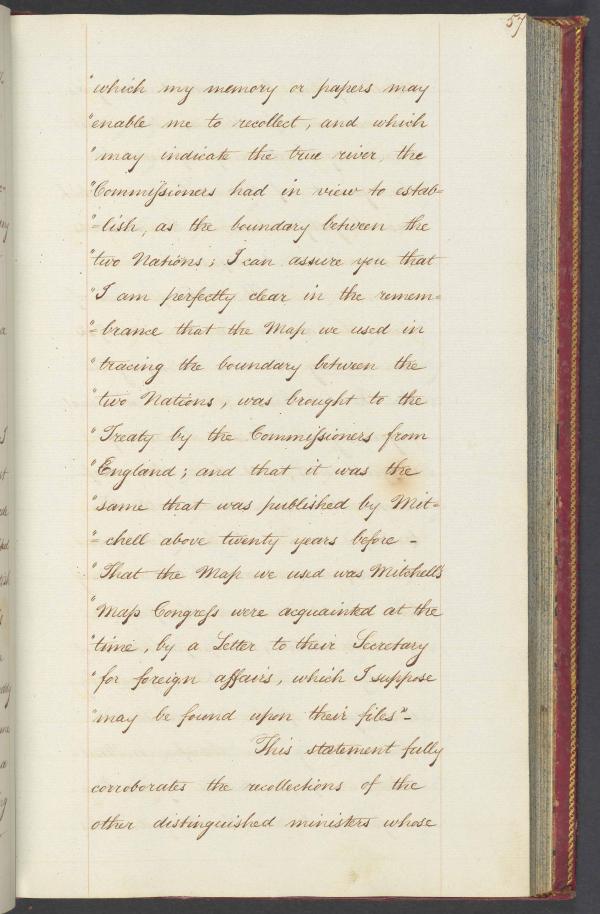 57
"which my memory or papers may
"enable me to recollect, and which
"may indicate the true river, the
"Commissioners had in view to estab=
"=lish, as the boundary between the
"two Nations; I can assure you that
"I am perfectly clear in the remem=
"=brance that the Map we used in
"tracing the boundary between the
"two Nations, was brought to the
"Treaty by the Commissioners from
"England; and that it was the
"same that was published by Mit=
"=chell above twenty years before -
"That the Map we used was Mitchells
"Map Congress were acquainted at the
"time, by a Letter to their Secretary
"for foreign affairs, which I suppose
"may be found upon their files"-
This statement fully
corroborates the recollections of the
other distinguished ministers whose